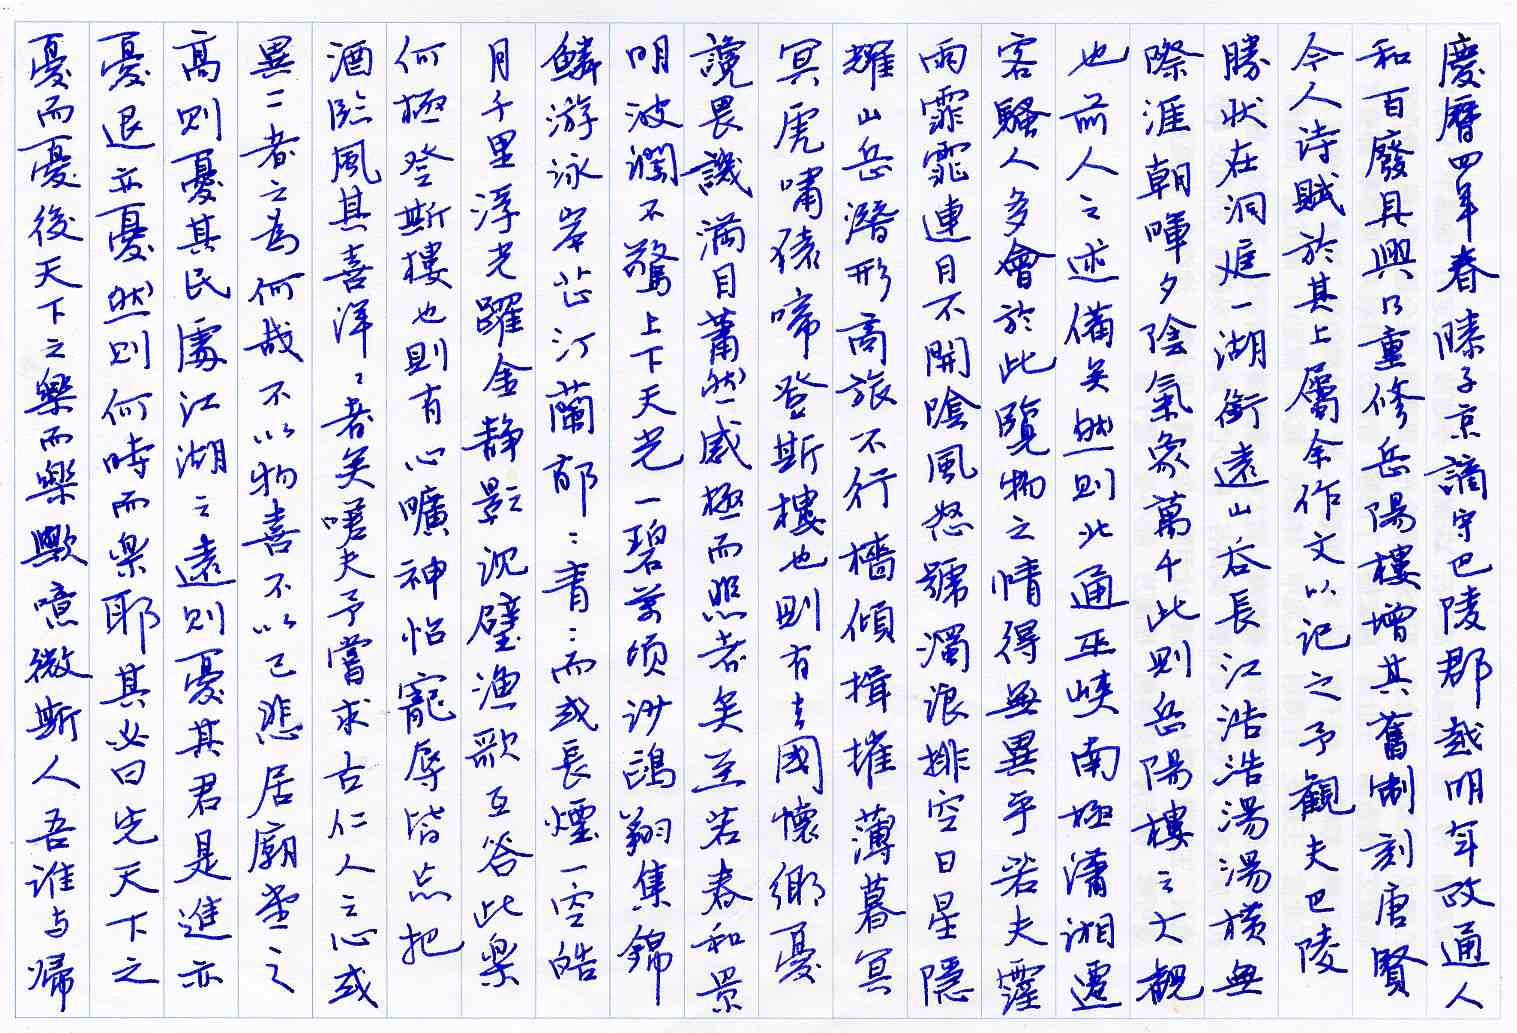 慶曆四年春滕子京謫守巴陵郡越明年政通人
和百廢具興乃重修岳陽樓增其舊制刻唐賢
今人诗賦於其上屬余作文以记之予觀夫巴陵
勝状在洞庭一湖銜遠山吞長江浩浩湯湯横無
際涯朝暉夕陰氣象萬千此则岳陽樓之大觀
也前人之述備矣然则北通巫峽南極瀟湘遷
客騷人多會於此覽物之情得無異乎若夫霪
雨霏霏連月不開陰風怒號濁浪排空日星隱
耀山岳潛形商旅不行檣傾楫摧薄暮冥
冥虎嘯猿啼登斯樓也则有去國懷鄉憂
讒畏譏滿目蕭然感極而悲者矣至若春和景
明波瀾不驚上下天光一碧萬頃沙鷗翔集錦
鱗游泳岸芷汀蘭郁〻青〻而或長煙一空皓
月千里浮光躍金静影沉璧渔歌互答此樂
何極登斯樓也则有心曠神怡寵辱皆忘把
酒臨風其喜洋〻者矣嗟夫予嘗求古仁人之心或
異二者之為何哉不以物喜不以己悲居廟堂之
高则憂其民處江湖之遠则憂其君是進亦
憂退亦憂然则何時而樂耶其必曰先天下之
憂而憂後天下之樂而樂歟噫微斯人吾谁与歸